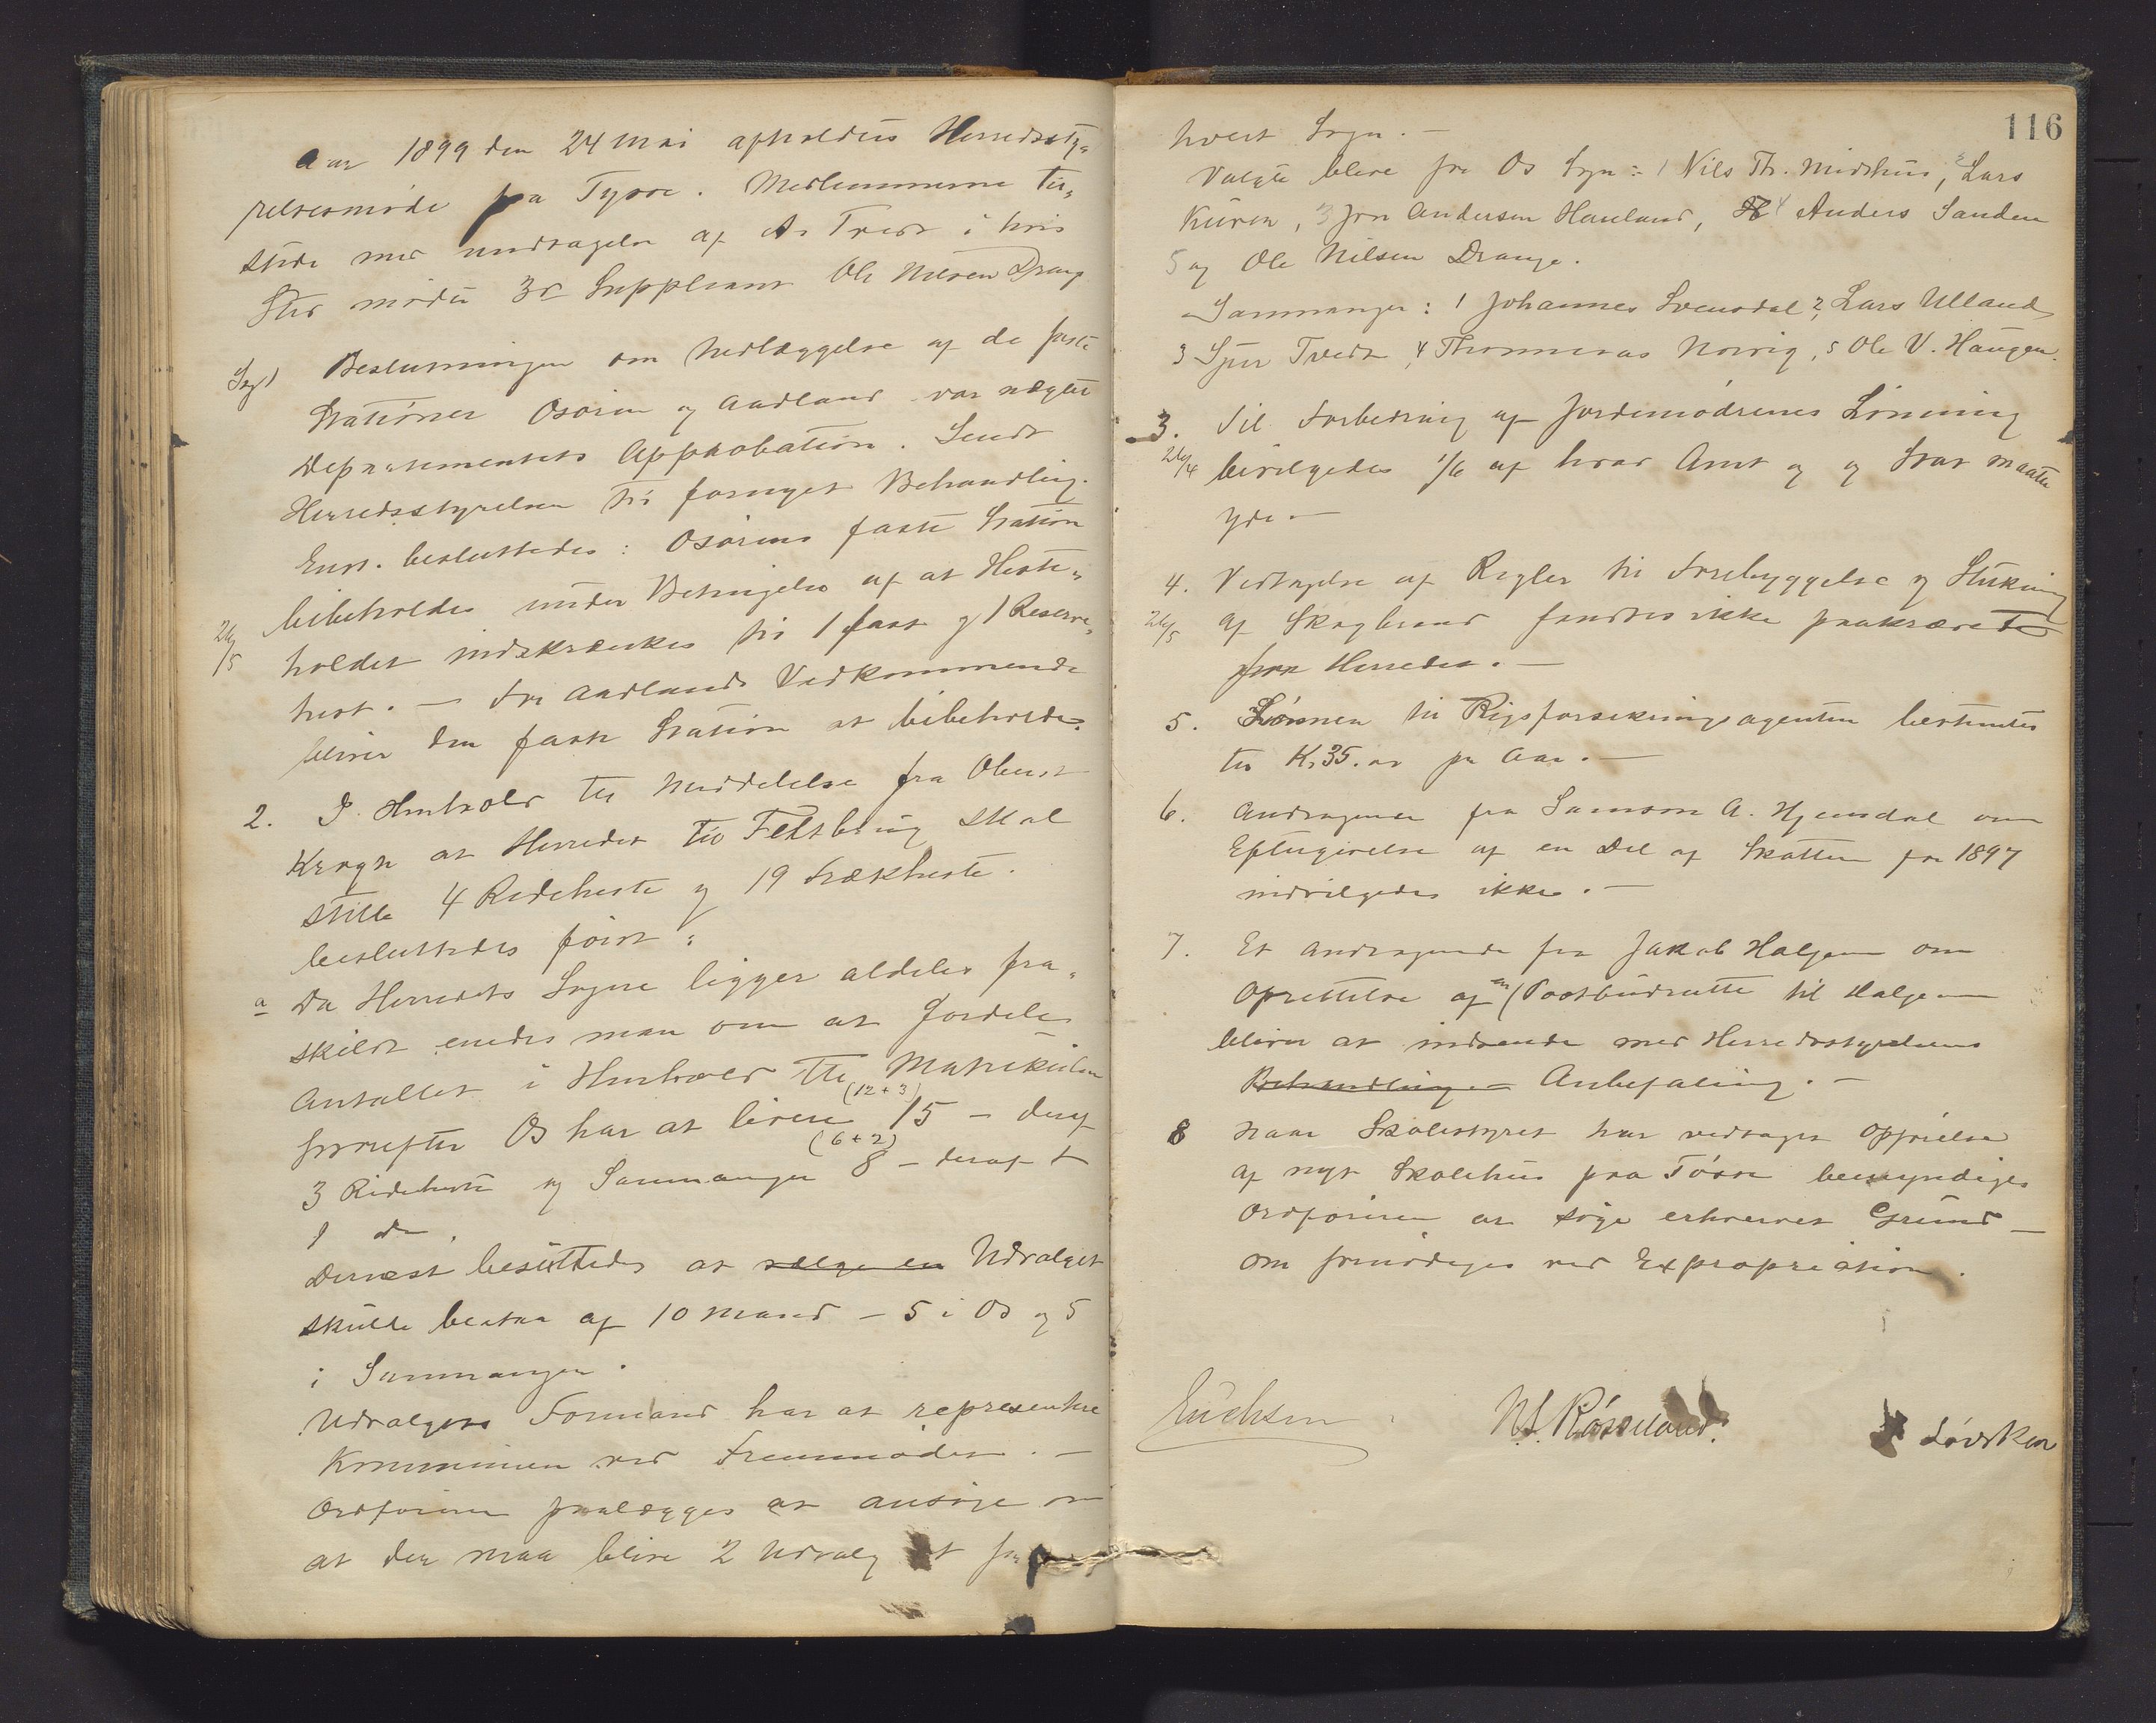 Aar 1899 den 24 Mai afholdtes Herredssty-
relsesmøde paa Tysse. Medlemmerne til-
stede med undtagelse af A. Tvedt i hvis
Sted mødte 3de Suppleant Ole Nilsen Drange
Sag 1 Beslutningen om Nedlæggelse af de faste
Stationer Osøren og Aadland var nægtet
Departementets Approbation. Sendt
Herredsstyrelsen til fornyet Behandling.
Enst. besluttedes: Osørens faste Station
bibeholdes under Betingelse af at Heste-
26/5 holdet indskrænkes til 1 fast og 1 Reserve-
hest. – For Aadlands Vedkommende
bliver den faste Station at bibeholde.
2. I Henhold til Meddelelse fra Oberst
Kragh at Herredet til Feltbrug skal
stille 4 Rideheste og 19 Trækheste.
besluttedes først:
a Da Herredets Sogne ligger aldeles fra-
skildt enedes man om at fordele
Antallet i Henhold til Matrikulen
(12+3)
hvorefter Os har at levere 15 – deraf
(6+2)
3 Rideheste og Samnanger 8 – deraf
1 do.
Dernæst besluttedes at vælge en Udvalget
skulde bestaa af 10 Mand – 5 i Os og 5
i Samnanger.
Udvalgets Formand har at representere
Kommunen ved Fremmøder. –
Ordføreren paalægges at ansøge om
at der maa blive 2 Udvalg et for
116
hvert Sogn. –
Valgte bleve fra Os Sogn: 1 Nils Th. Midthus, 2 Lars
Kuven, 3 Jon Andersen Hauland, 4 Anders Sanden
5 og Ole Nilsen Drange.
Samnanger: 1 Johannes Svensdal 2, Lars Ulland
3 Sjur Tvedt, 4 Thommeras Norvig, 5 Ole V. Haugen.
3. Til Forbedring af Jordemødrenes Lønning
26/4 bevilgedes 1/6 af hvad Amt og og Stat maatte
yde. –
4. Vedtagelse af Regler til Forebyggelse og Slukning
26/5 af Skogbrand fandtes ikke paakrævet
for Herredet. –
5. Lønnen til Rigsforsikringsagenten bestemtes
til Kr 35.00 pr Aar. –
6. Andragende fra Samson A. Hjemdal om
Eftergivelse af en Del af Skatten for 1897
indvilgedes ikke. –
7. Et Andragende fra Jakob Haljem om
en
Oprettelse af Postbudrutte til Haljem
bliver at indsende med Herredsstyrelsens
Behandling. – Anbefaling. –
8 Naar Skolestyret har vedtaget Opførelse
af nyt Skolehus paa Tøsse bemyndiges
Ordføreren at søge erhvervet Grund –
om fornødiges ved Expropriation.
Erichsen N. L. Røsseland. Løvsken